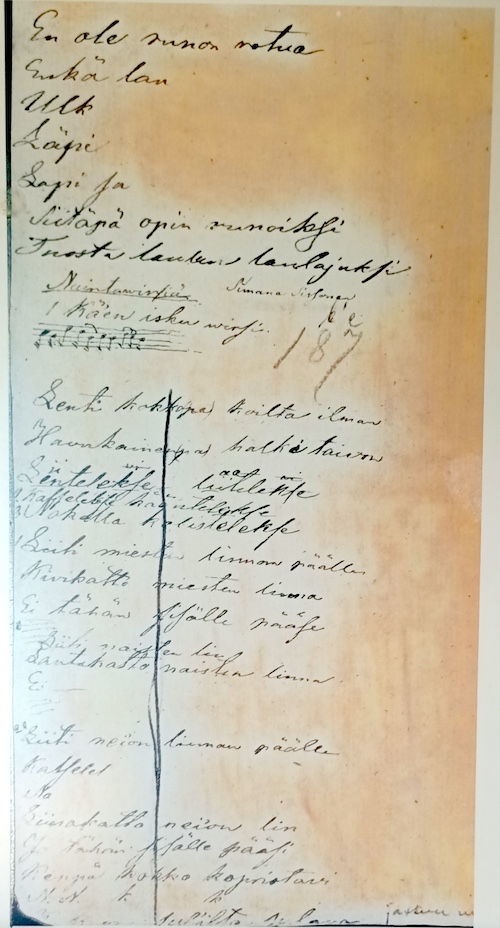 En ole runon rotua
Enkä lau
Ulk
Läpi
Lapi ja
Siitäpä opin runoiksi
Tuosta lauluu laulajuksi
Simana Sissonen
1 Käen isku wirsi.
187
Lenti kokko(pa) koilta ilman
Havukainen(pa) halki taivon
Lentelekse liitelekse
Katselekse kääntelekse
kalistelekse
Liiti miesten linnan päälle
Kivikatto miesten linna
Ei tähän sisälle pääse
Liiti naisten lin
naisten linna
Ei
Liiti neion linnan päälle
Katselel
Na
Liinakatto neion lin
Jo tähän sisälle pääsi
Koppä kokko kopristavi
N. N. k k